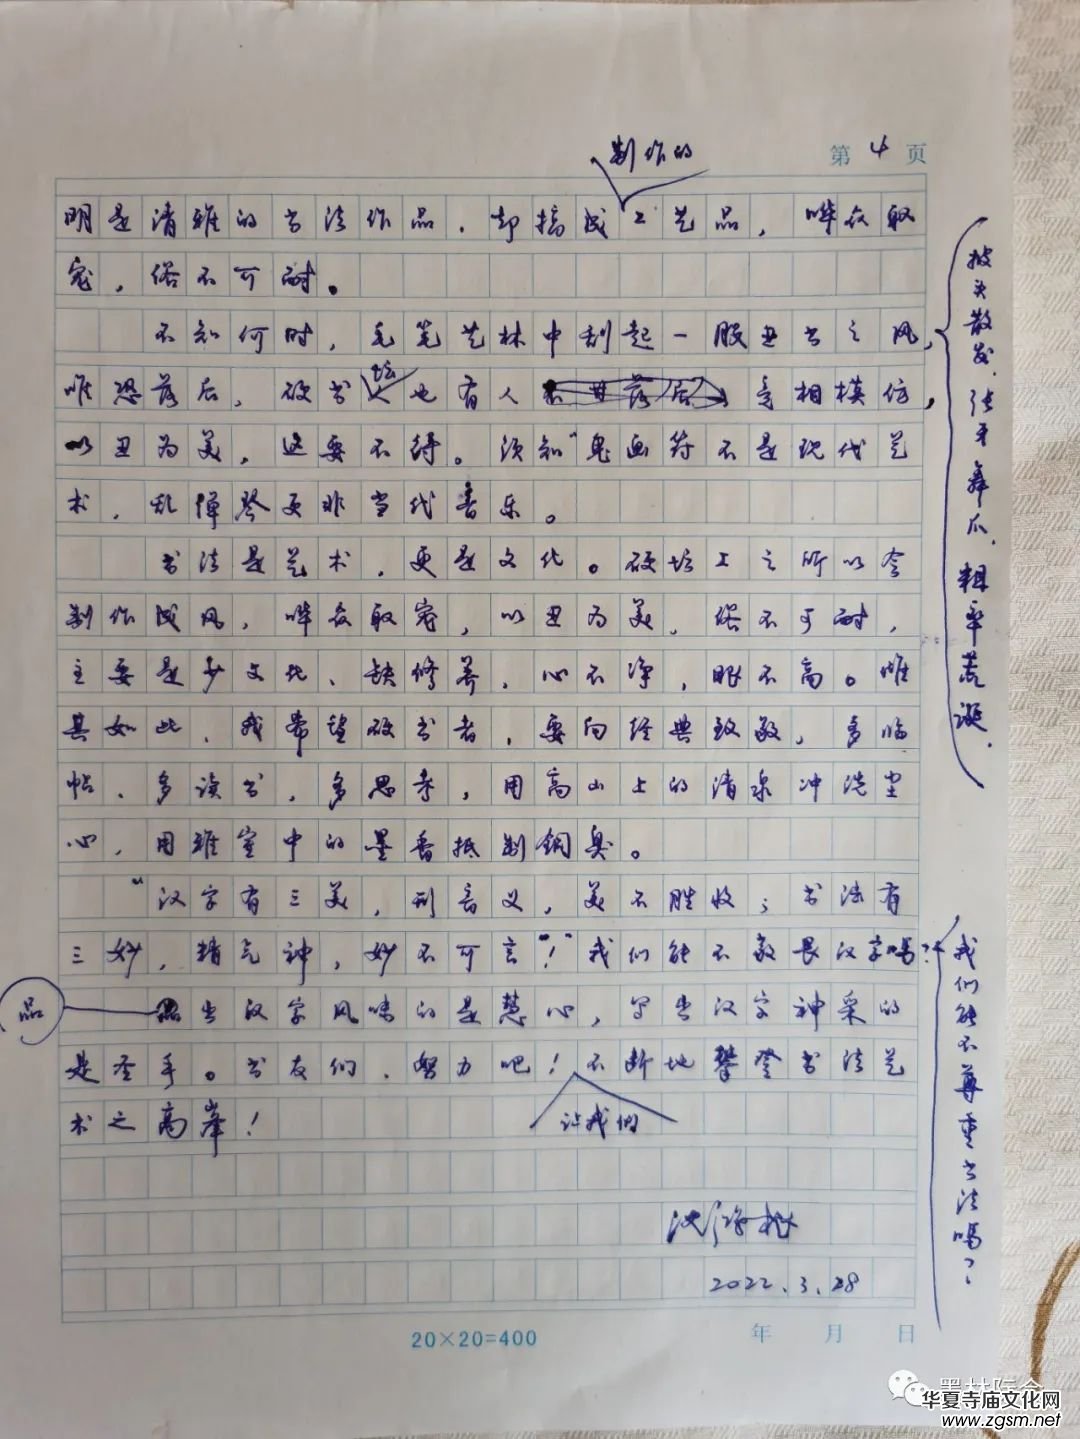 第 4 页
制作的
明是清雅的书法作品，却搞成工艺品，哗众取
宠，俗不可耐。
不知何时，毛笔艺林中刮起一股丑书之风，
坛
唯恐落后，硬书也有人 竞相模仿，
以丑为美，这要不得。须知"鬼画符不是现代艺
术，乱弹琴更非当代音乐。
书法是艺术，更是文化。硬坛上之所以会
制作成风，哗众取宠，以丑为美，俗不可耐，
主要是少文化、缺修养，心不净，眼不高。唯
其如此，我希望硬书者，要向经典致敬，多临
帖、多读书，多思考，用高山上的清泉冲洗尘
心，用雅室中的墨香抵制铜臭。
"汉字有三美，形音义，美不胜收；书法有
三妙，精气神，妙不可言"！"我们能不敬畏汉字吗？
品
出汉字风味的是慧心，写出汉字神采的
是圣手。书友们，努力吧！不断地攀登书法艺
让我们
术之高峰！
披头散发，张牙舞爪，粗率荒诞，
我们能不尊重书法吗？
沈鸿根
2022.3.28
20×20=400
年 月 日
墨林际会
华夏寺庙文化网
www.zgsm.net